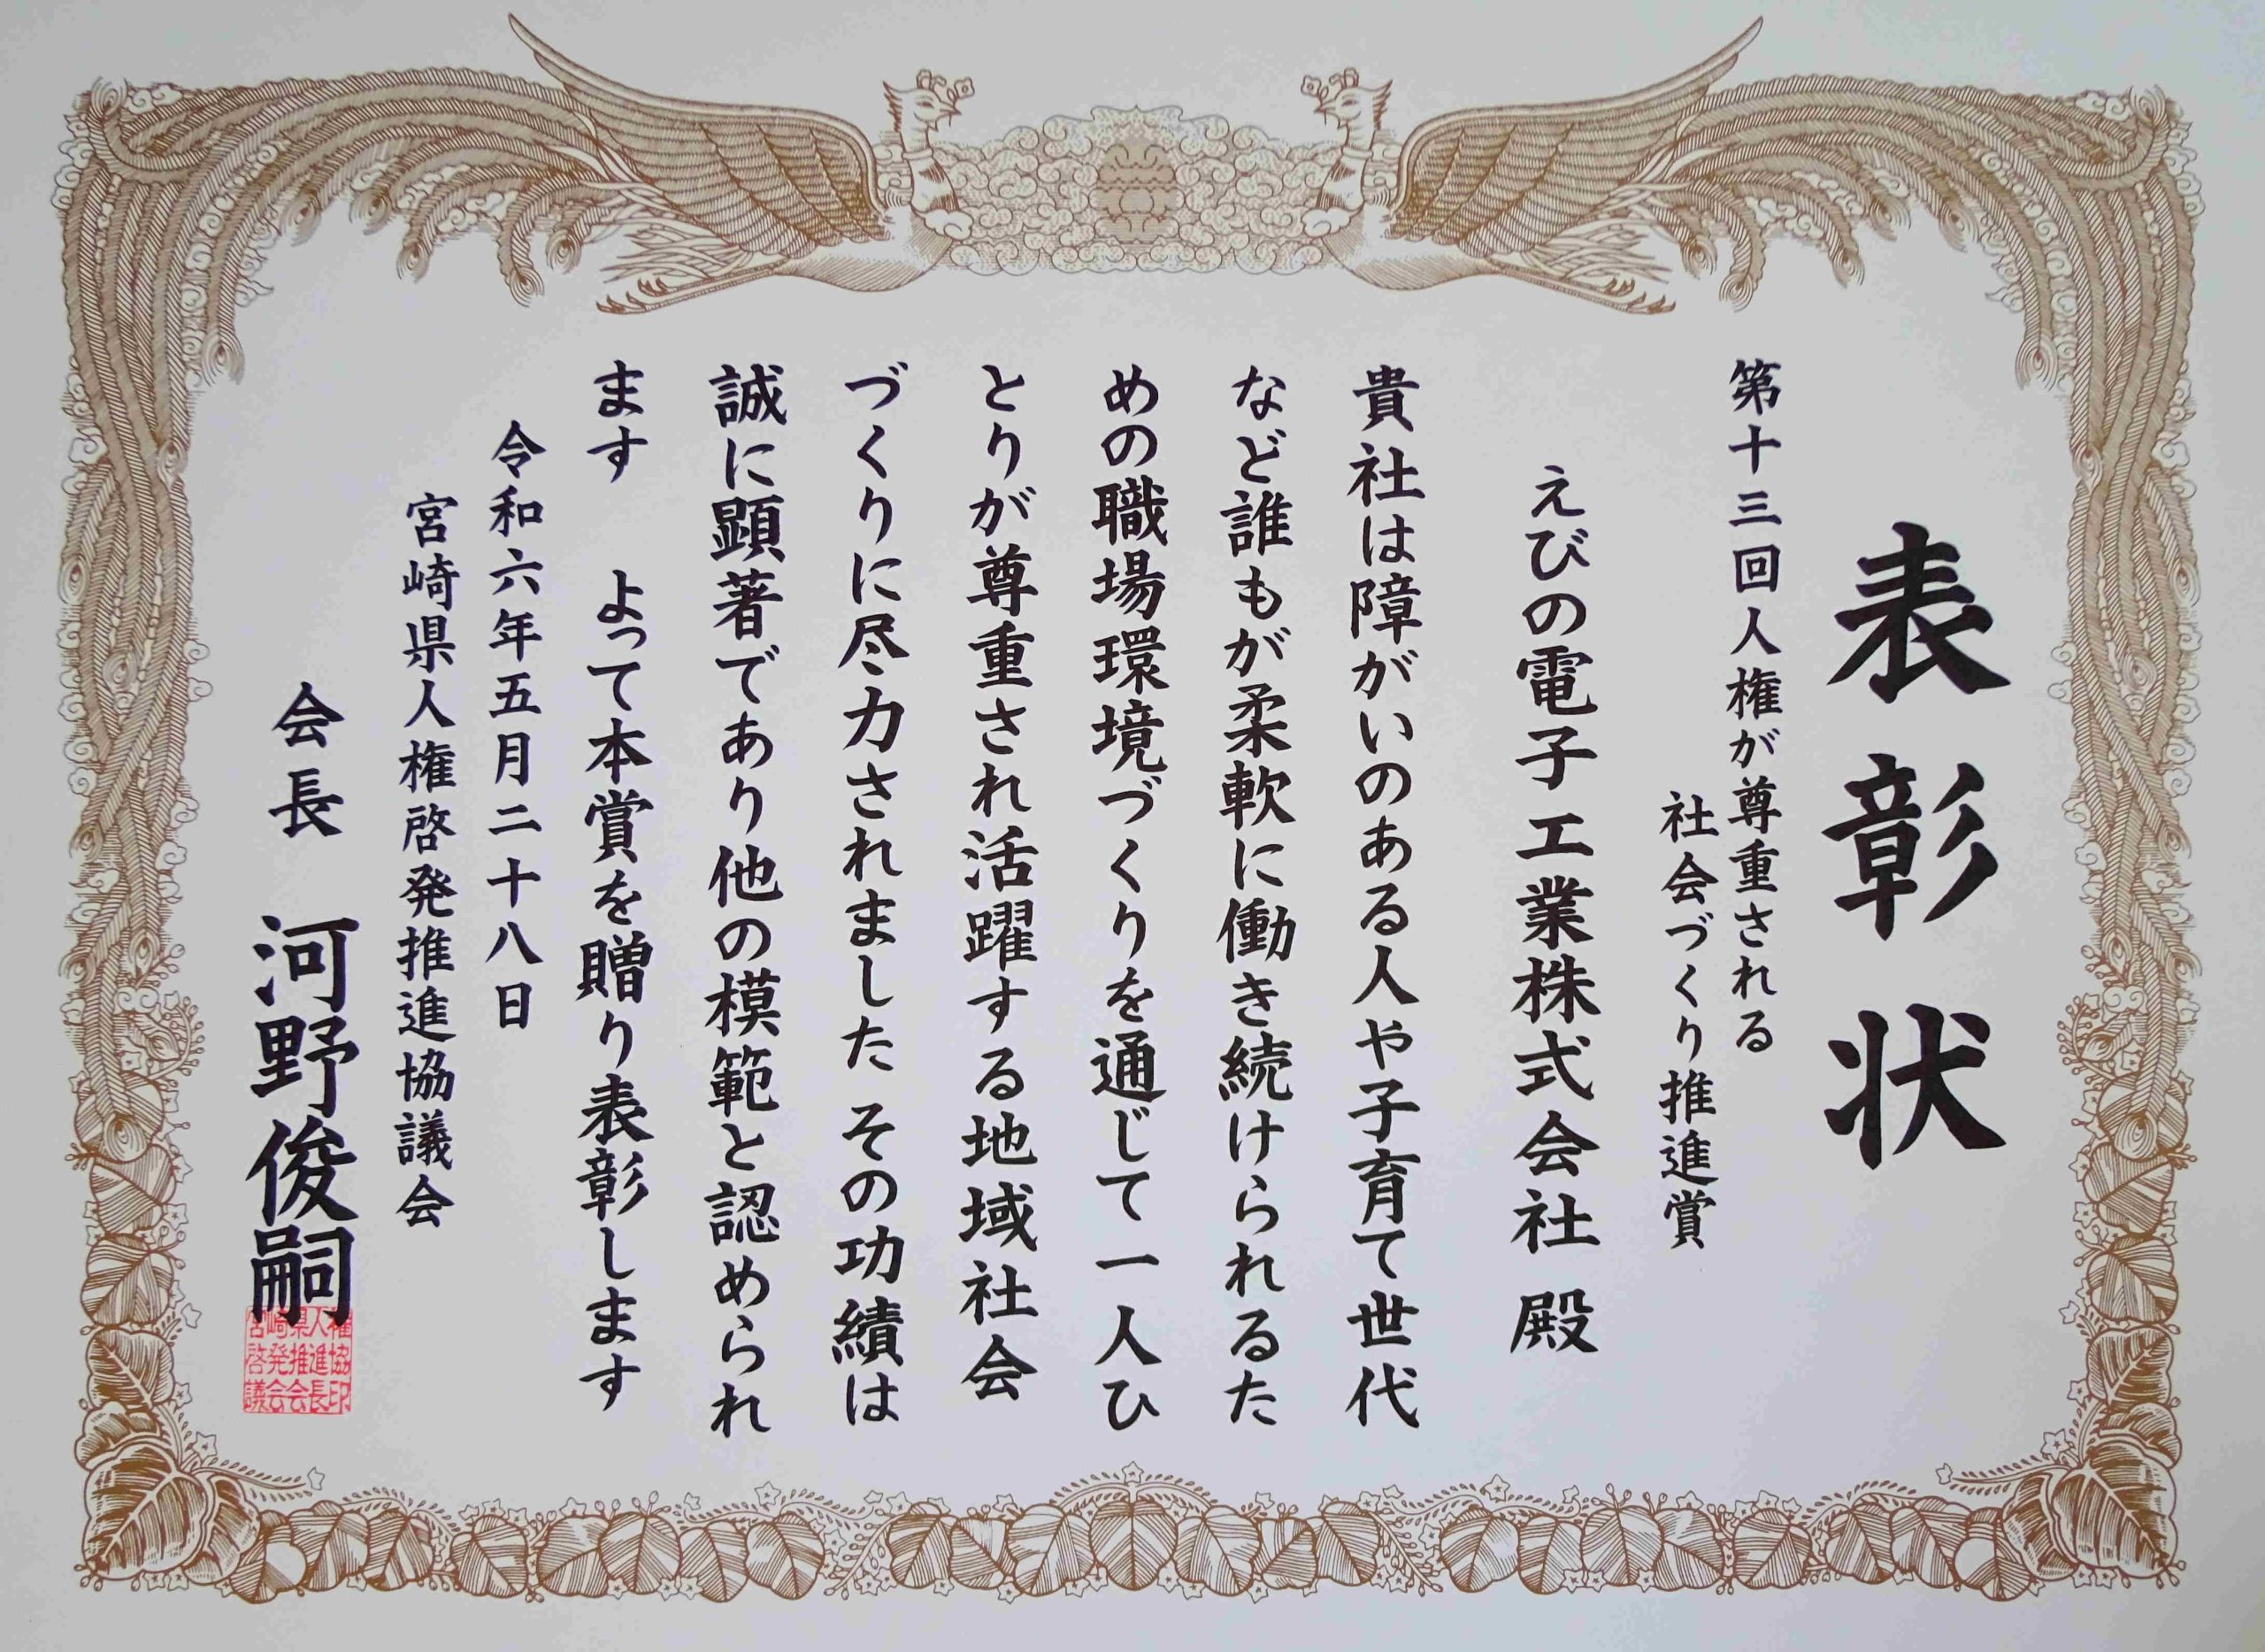 表彰状
第十三回人権が尊重される
社会づくり推進賞
えびの電子工業株式会社 殿
貴社は障がいのある人や子育て世代
など誰もが柔軟に働き続けられるた
めの職場環境づくりを通じて一人ひ
とりが尊重され活躍する地域社会
づくりに尽力されました その功績は
誠に顕著であり他の模範と認められ
ます よって本賞を贈り表彰します
令和六年五月二十八日
宮崎県人権啓発推進協議会
会長 河野俊嗣
宮崎県人権
啓発推進協
議会会長印